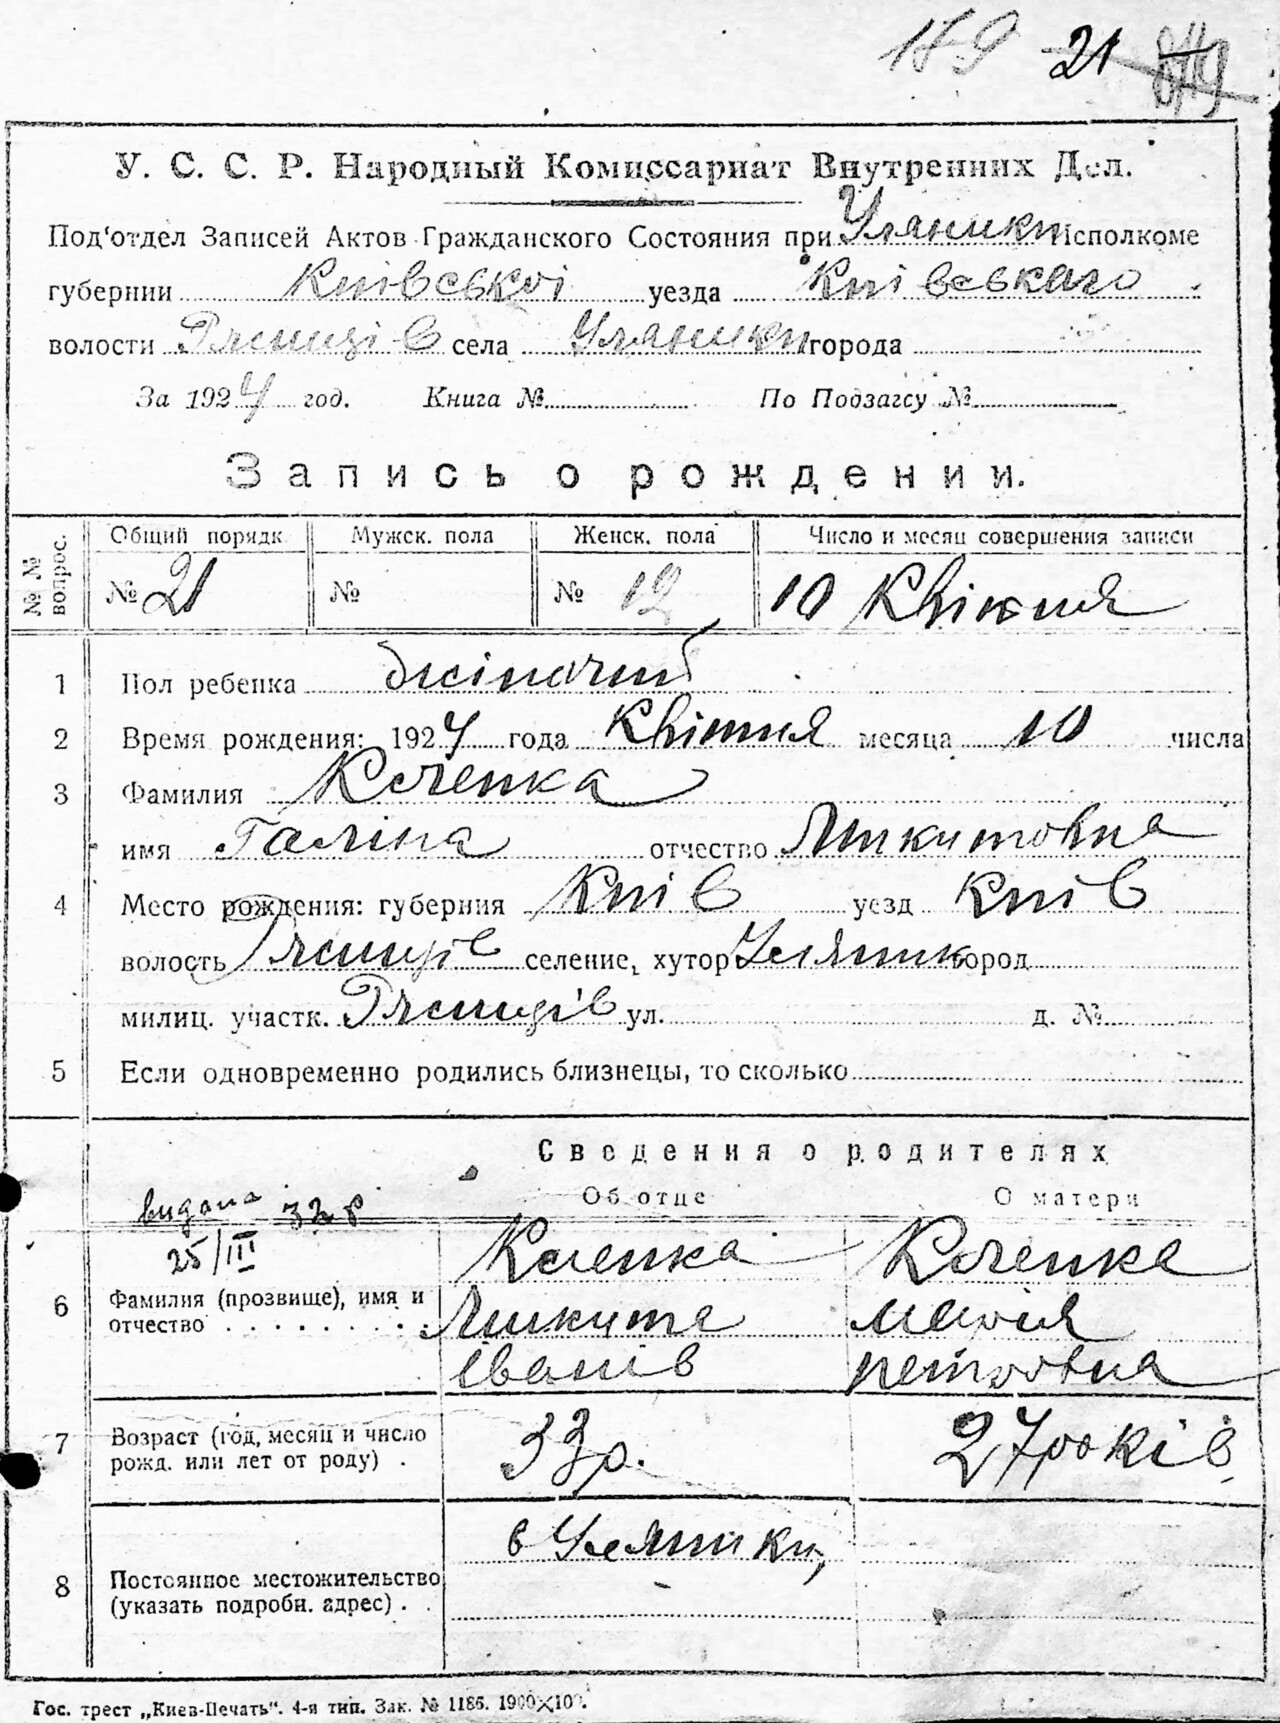 189 21
У. С. С. Р. Народный Комиссариат Внутренних Дел.
Под'отдел Записей Актов Гражданского Состояния при Уляники Исполкоме
губернии Київської уезда Київського
волости Ржищів села Уляники города
За 1924 год. Книга № По Подзагсу №
Запись о рождении.
№ № вопрос. Общий порядк. Мужск. пола Женск. пола Число и месяц совершения записи
№ 21 № № 12 10 Квітня
1 Пол ребенка жіночий
2 Время рождения: 1924 года Квітня месяца 10 числа
3 Фамилия
имя Галіна отчество Микитовна
4 Место рождения: губерния Київ уезд Київ
волость Ржищів селение, хутор Уляники город
милиц. участк. Ржищів ул. д. №
5 Если одновременно родились близнецы, то сколько
Сведения о родителях
Об отце О матери
видана 32 р
25/III
6 Фамилия (прозвище), имя и отчество
Микита Марія
Іванів петровна
7 Возраст (год, месяц и число рожд. или лет от роду) . 33р. 27 років
8 Постоянное местожительство (указать подробн. адрес) . . в Уляники,
Гос. трест „Киев-Печать". 4-я тип. Зак. № 1186.